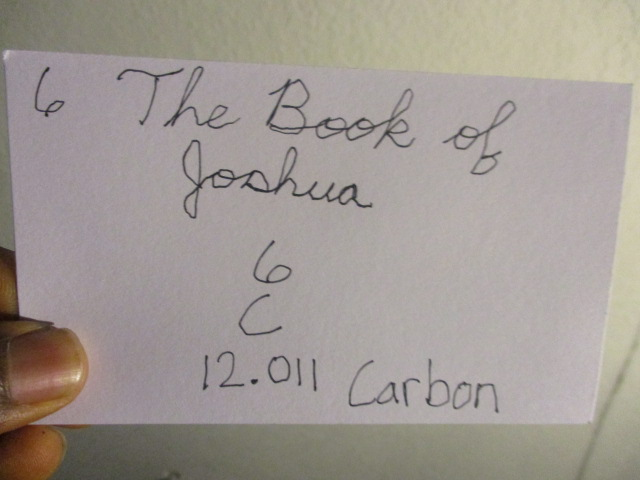 6 The Book of
Joshua
6
C
12.011 Carbon